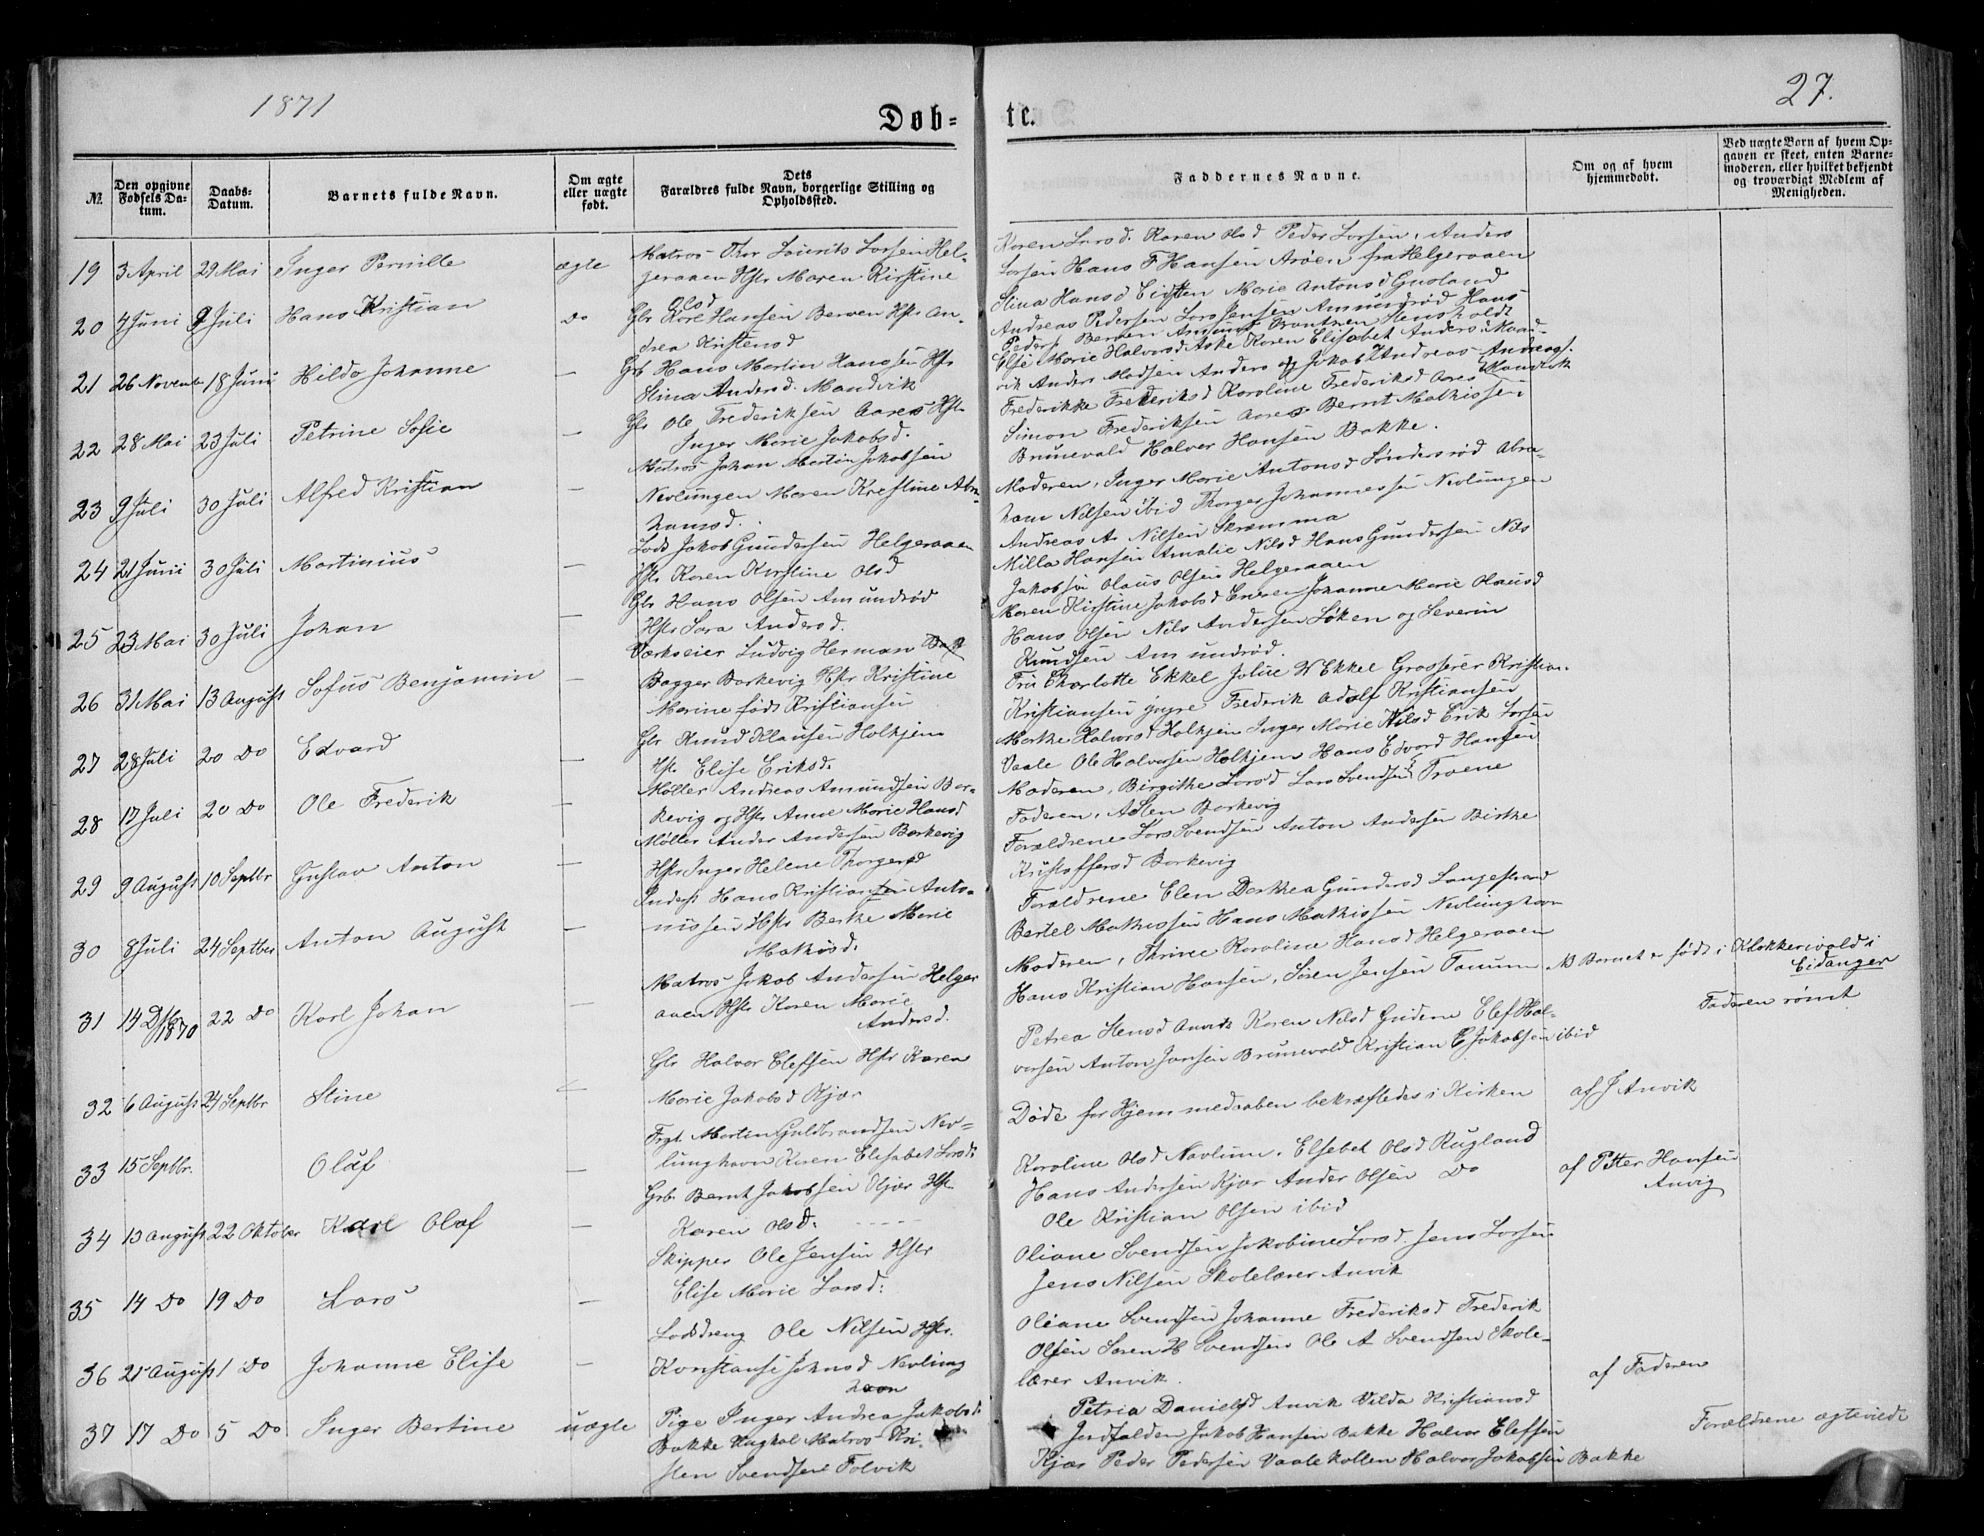 1871
27.
Døb=
te.
№
Den opgivne Fødsels Datum.
Daabs-Datum.
Barnets fulde Navn.
Om ægte eller uægte født.
Dets Forældres fulde Navn, borgerlige Stilling og Opholdssted.
Faddernes Navne.
Om og af hvem hjemmedøbt.
Ved uægte Børn af hvem Opgaven er skeet, enten Barnemoderen, eller hvilket bekjendt og troværdigt Medlem af Menigheden.
19 3 April 29 Mai Inger Pernille ægte
Matros Thor Laurits Larsen Hel-
geraaen Hstr Maren Kirstine
Olsd
Karen Larsd. Karen Olsd Peder Larsen, Anders
Larsen Hans F Hansen Arøen fra Helgeraaen
20 4 Juni 9 Juli Hans Kristian do
Gbr Karl Hansen Berven Hstr An-
drea Kristensd
Stina Hansd Eidsten Marie Antonsd Gusland
Andreas Pedersen Lars Jensen Amundrød Hans
Peders Berven
21 26 Novemb 18 Juni Hilda Johanne —
Gb Hans Martin Hanssen Hstr
Stina Andersd. Mandvik
Else Marie Halvorsd Aske Karen Elisabet Anders. Mand-
vik Anders Madsen Anders og Jakob Andreas Andreass.
Mandvik
22 28 Mai 23 Juli Petrine Sofie —
Gbr Ole Frederiksen Aares Hstr
Inger Marie Jakobsd.
Frederikke Frederiksd Karoline Frederiksd Aares
Simon Frederiksen Aares Bernt Mathissen
Brunevald Halvor Hansen Bakke.
23 9 Juli 30 Juli Alfred Kristian —
Matros Johan Martin Jakobsen
Nevlungen Maren Kristine Abra-
hamsd.
Moderen, Inger Marie Antonsd Søndersrød Abra-
ham Nilsen ibid Thorger Johannessen Nevlungen
Andreas A. Nilsen Skræmma
24 21 Juni 30 Juli Martinius —
Lods Jakob Gundersen Helgeraaen
Hstr Karen Kirstine Olsd
Milla Hansen Amalie Nilsd Hans Gundersen Nils
Jakobsen Olaus Olsen Helgeraaen
25 23 Mai 30 Juli Johan —
Gbr Hans Olsen Amundrød
Hstr Sara Andersd.
Maren Kirstine Jakobsd Johanne Marie Olausd
Hans Olsen Nils Andersen Løken og Severin
Knudsen Amundrød.
26 31 Mai 13 August Sofus Benjamin —
Værkseier Ludvig Herman
Bagger Barkevig Hstr Kristine
Marine født Kristiansen
Fru Charlotte Ekkel Julie W Ekkel Grosserer Kristian
Kristiansen Frederik Adolf Kristiansen
27 28 Juli 20 Do Edvard —
Gbr Knud Klausen Holkjem
Hstr Elise Eriksd.
Marthe Halvorsd Holkjen Inger Marie Nilsd Erik Larsen
Vaale Ole Halvorsen Holkjem Hans Edvard Hansen
28 17 Juli 20 Do Ole Frederik —
Møller Andreas Amundsen Bar-
kevig og Hstr Anne Marie Hansd
Moderen, Birgithe Larsd Lars Svendsen Traene
Faderen, Barkevig
29 9 August 10 Septbr Gustav Anton —
Møller Ander Andersen Barkevig
Hstr Inger Helene Thorgersd
Forældrene Lars Svendsen Anton Andersen Birthe
Kristoffersd Barkevig
30 8 Juli 24 Septber Anton August —
Inderst Hans Kristian Anto-
nissen Hstr Berthe Marie
Mathisd.
Forældrene Elen Dorthea Gundersd Langestrand
Bertel Mathissen Hans Mathissen Nevlunghavn
31 14 Dbr 1870 22 Do Karl Johan —
Matros Jakob Andersen Helger
aaen Hstr Karen Marie
Andersd.
Moderen, Thrine Karoline Hansd Helgeraaen
Hans Kristian Hansen, Søren Jensen Tanum
NB Barnet er født i Klokkerivold i
Eidanger
Faderen rømt
32 6 August 24 Septbr Stine
Gbr Halvor Elefsen Hstr Karen
Marie Jakobsd Kjær
Petrea Hansd Anvik Karen Nilsd Elef Hal-
vorsen Anton Jansen Brunevold Kristian E Jakobsen ibid
33 15 Septbr. Olaf —
Frgt. Martin Guldbrandsen Nev-
lunghavn Karen Elisabet Larsd.
Døde før Hjemmedaaben bekræftedes i Kirken
af J Anvik
34 13 August 22 Oktober Karl Olaf —
Gbr. Bernt Jakobsen Kjær Hstr
Karen Olsd.
Karoline Olsd Navlum. Elsebet Olsd Rugland
Hans Andersen Kjær Ander Olsen Do
Ole Kristian Olsen ibid
af Petter Hansen
Anvig
35 14 Do 19 Do Lars —
Skipper Ole Jensen Hstr
Elise Marie Larsd:
Oliane Svendsen Jakobine Larsd. Jens Larsen
Jens Nilsen Skolelærer Anvik
36 21 August 1 Do Johanne Elise —
Lodsdreng Ole Nilsen Hstr.
Konstanse Johnsd Nevlung
havn
Oliane Svendsen Johanne Frederiksd Frederik
Olsen Søren H Svendsen Ole A Svendsen Skole-
lærer Anvik.
af Faderen
37 17 Do 5 Do Inger Bertine uægte
Pige Inger Andrea Jakobsd:
Bakke Ungkal Matros Kri-
sten Svendsen Folvik
Petria Danielsd Anvik Vilda Kristiansd
Jordfalden Jakob Hansen Bakke Halvor Elefsen
Kjær Peder Pedersen Vaalekollen Halvor Jakobsen Bakke
Forældrene ægteviede